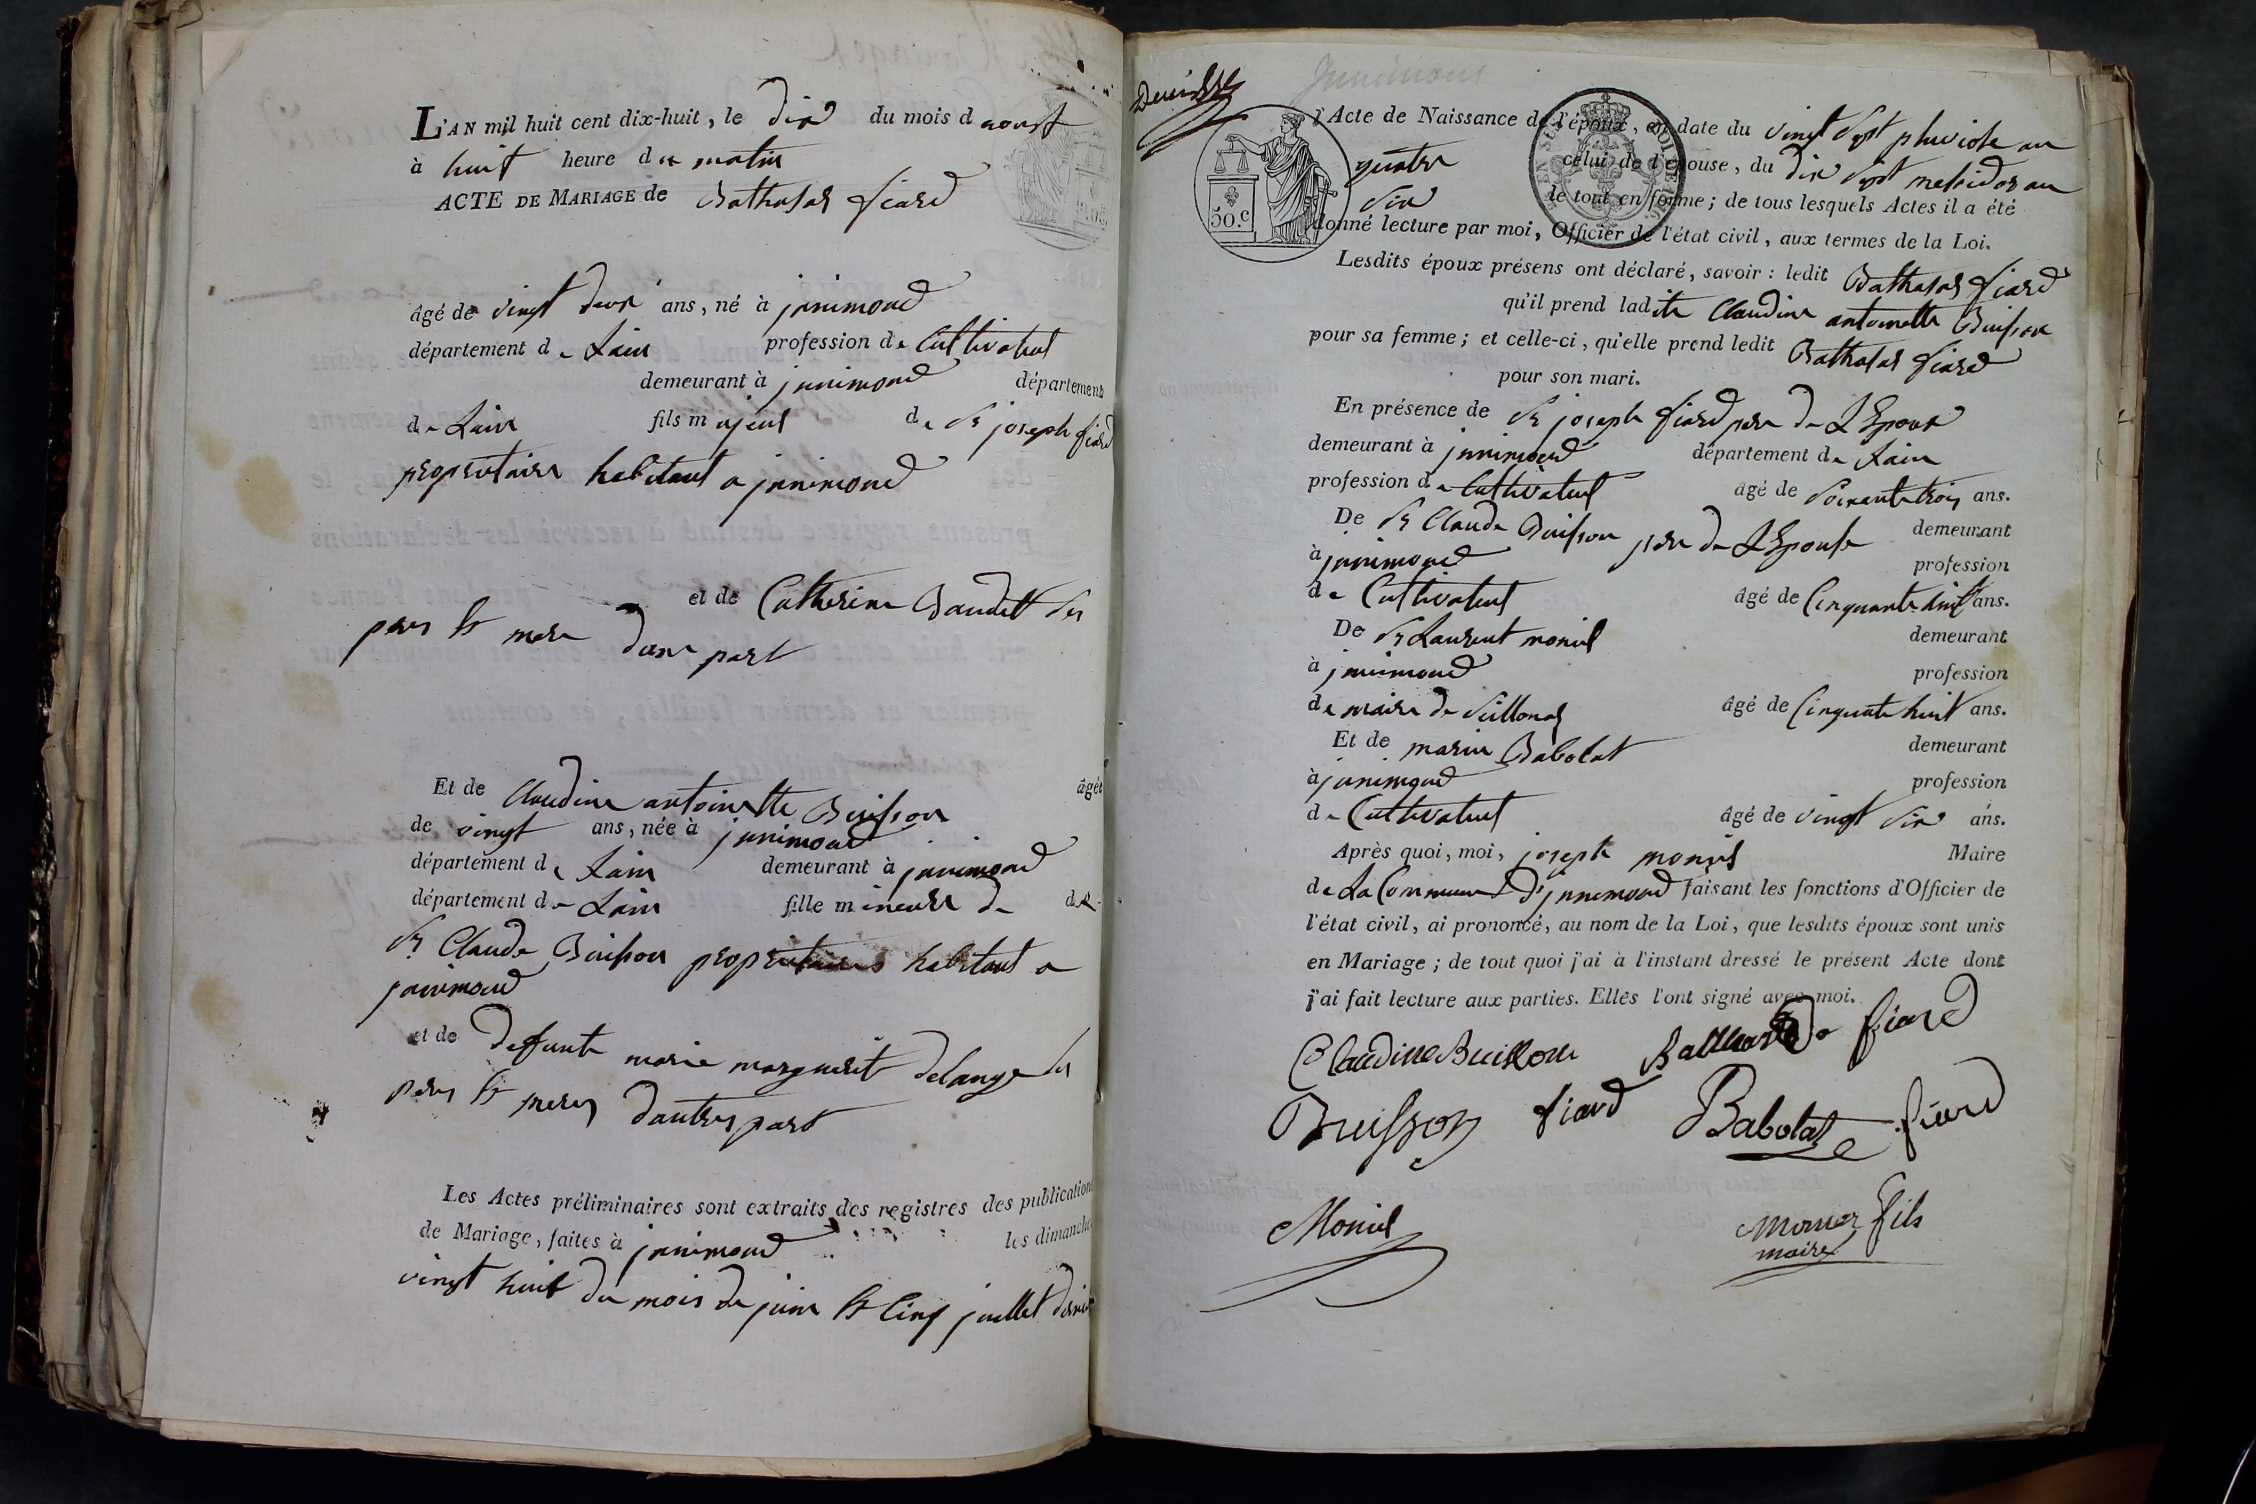 L'AN mil huit cent dix-huit, le dix du mois d aoust
à huit heure du matin
ACTE DE MARIAGE de Bathasar fiard
âgé de vingt deux ans, né à junimond
département de Lain profession de Cultivateur
demeurant à junimond département
de Lain fils majeur de Sr joseph fiard
propriétaire habitant a junimond
et de Catherine Baudet ses
pere et mere dune part
Et de Claudine antoinette Buisson âgée
de vingt ans, née à junimond
département de Lain demeurant à junimond
département de Lain fille mineure de de
Sr Claude Buisson propriétaires habitant a
junimond
et de deffunte marie marguerit delange ses
peres et meres dautres part
Les Actes préliminaires sont extraits des registres des publications
de Mariage, faites à junimond les dimanches
vingt huit du mois de juin et cinq juillet dernier
junimond
50.c
l'Acte de Naissance de l'époux, en date du vingt sept pluviose an
quatre celui de l'épouse, du dix sept messidor an
six le tout en forme; de tous lesquels Actes il a été
donné lecture par moi, Officier de l'état civil, aux termes de la Loi.
Lesdits époux présens ont déclaré, savoir: ledit Bathasar fiard
qu'il prend ladite Claudine antoinette Buisson
pour sa femme; et celle-ci, qu'elle prend ledit Bathasar fiard
pour son mari.
En présence de Sr joseph fiard pere de LEpoux
demeurant à junimond département de Lain
profession de Cultivateur âgé de soixante trois ans.
De Sr Claude Buisson pere de LEpouse demeurant
à junimond profession
de Cultivateur âgé de Cinquante huit ans.
De Sr Laurent moniel demeurant
à junimond profession
de maire de Villonas âgé de Cinquante huit ans.
Et de marin Babolat demeurant
à junimond profession
de Cultivateur âgé de vingt six ans.
Après quoi, moi, joseph monier Maire
de La Commune d'junimond faisant les fonctions d'Officier de
l'état civil, ai prononcé, au nom de la Loi, que lesdits époux sont unis
en Mariage; de tout quoi j'ai à l'instant dressé le présent Acte dont
j'ai fait lecture aux parties. Elles l'ont signé avec moi.
Claudine Buisson fiard
Buisson fiard Babolat fiard
Moniel monier fils
maire